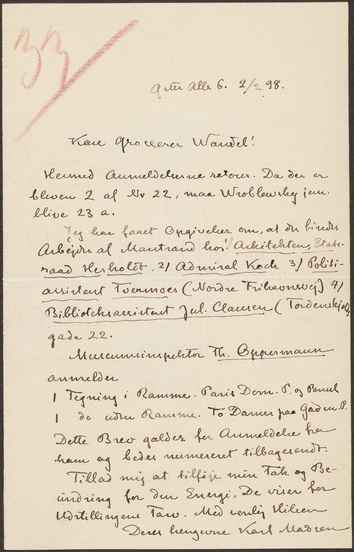 33
Alle 6. 2/2 98.
Kære Grosserer Wandel!
Hermed Anmeldelserne retour. Da der er
bleven 2 af Nr 22, maa Wroblewsky jeu
blive 23 a.
Jeg har faaet Opgivelser om, at der findes
Arbejder af Mantzand hos: Arkitekten, Etats-
raad Herholdt, 2/ Admiral Koch 3/ Politi-
assistent Tvermoes (Nordre Frihavnsvej) 4/
Bibliotheksassistent Jul. Clausen (Tordenskjolds
gade 22.
Museumsinspektør Th. Oppermann
anmelder
1 Tegning i Ramme. Paris Dom. P. og Pensel
1 do uden Ramme. To Damer paa Gaden P.
Dette Brev gælder for Anmeldelse fra
ham og bedes nummereret tilbagesendt.
Tillad mig at tilføje min Tak og Be-
undring for den Energi, De viser for
Udstillingens Tarv. Med venlig Hilsen
Deres hengivne Karl Madsen